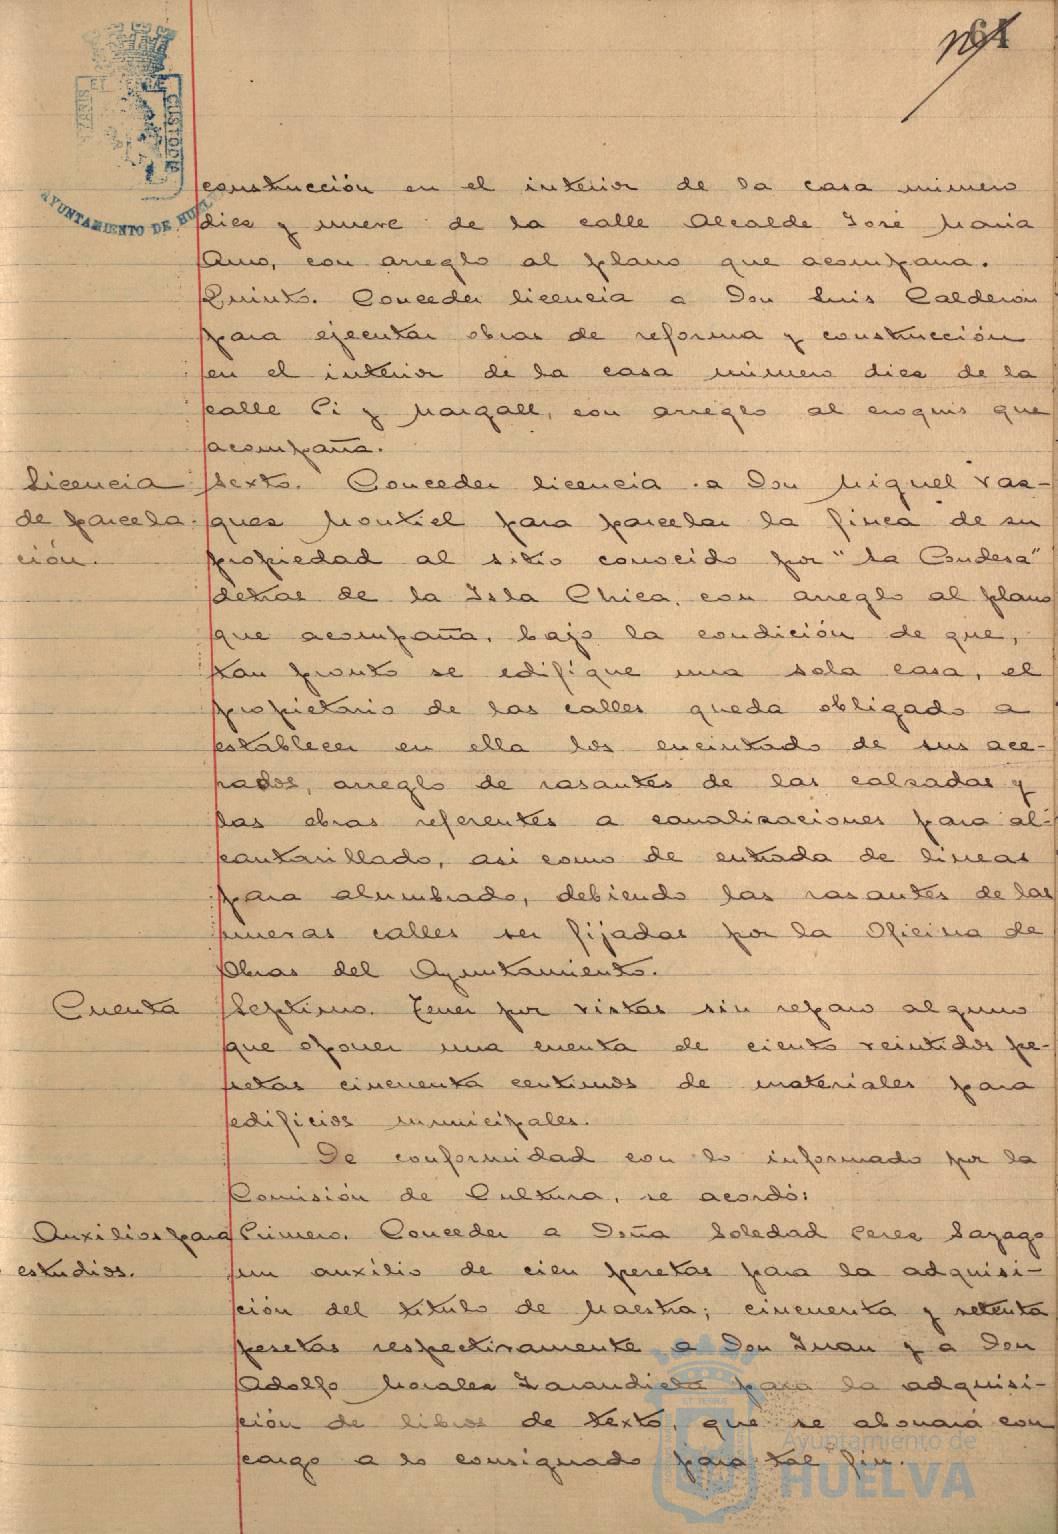 64
AYUNTAMIENTO DE HUELVA
construcción en el interior de la casa número
diez y nueve de la calle Alcalde José María
Amo, con arreglo al plano que acompaña.
Quinto. Conceder licencia a Don Luis Calderón
para ejecutar obras de reforma y construcción
en el interior de la casa número diez de la
calle Pi y Margall, con arreglo al croquis que
acompaña.
Licencia
de parcela-
ción.
Sexto. Conceder licencia a Don Miguel Vaz-
quez Montiel para parcelar la finca de su
propiedad al sitio conocido por "La Condesa"
detras de la Isla Chica, con arreglo al plano
que acompaña, bajo la condición de que,
tan pronto se edifique una sola casa, el
propietario de las calles queda obligado a
establecer en ella los encintado de sus ace-
rados, arreglo de rasantes de las calzadas y
las obras referentes a canalizaciones para al-
cantarillado, asi como de entrada de lineas
para alumbrado, debiendo las rasantes de las
nuevas calles ser fijadas por la Oficina de
Obras del Ayuntamiento.
Cuenta
Septimo. Tener por vistas sin reparo alguno
que oponer una cuenta de ciento veintidos pe-
setas cincuenta centimos de materiales para
edificios municipales.
De conformidad con lo informado por la
Comisión de Cultura, se acordó:
Auxilios para
estudios.
Primero. Conceder a Doña Soledad Perez Sayago
un auxilio de cien pesetas para la adquisi-
ción del título de Maestra; cincuenta y setenta
pesetas respectivamente a Don Juan y a Don
Adolfo Morales Zarandieta para la adquisi-
ción de libros de texto, que se abonará con
cargo a lo consignado para tal fin.
Ayuntamiento de
HUELVA